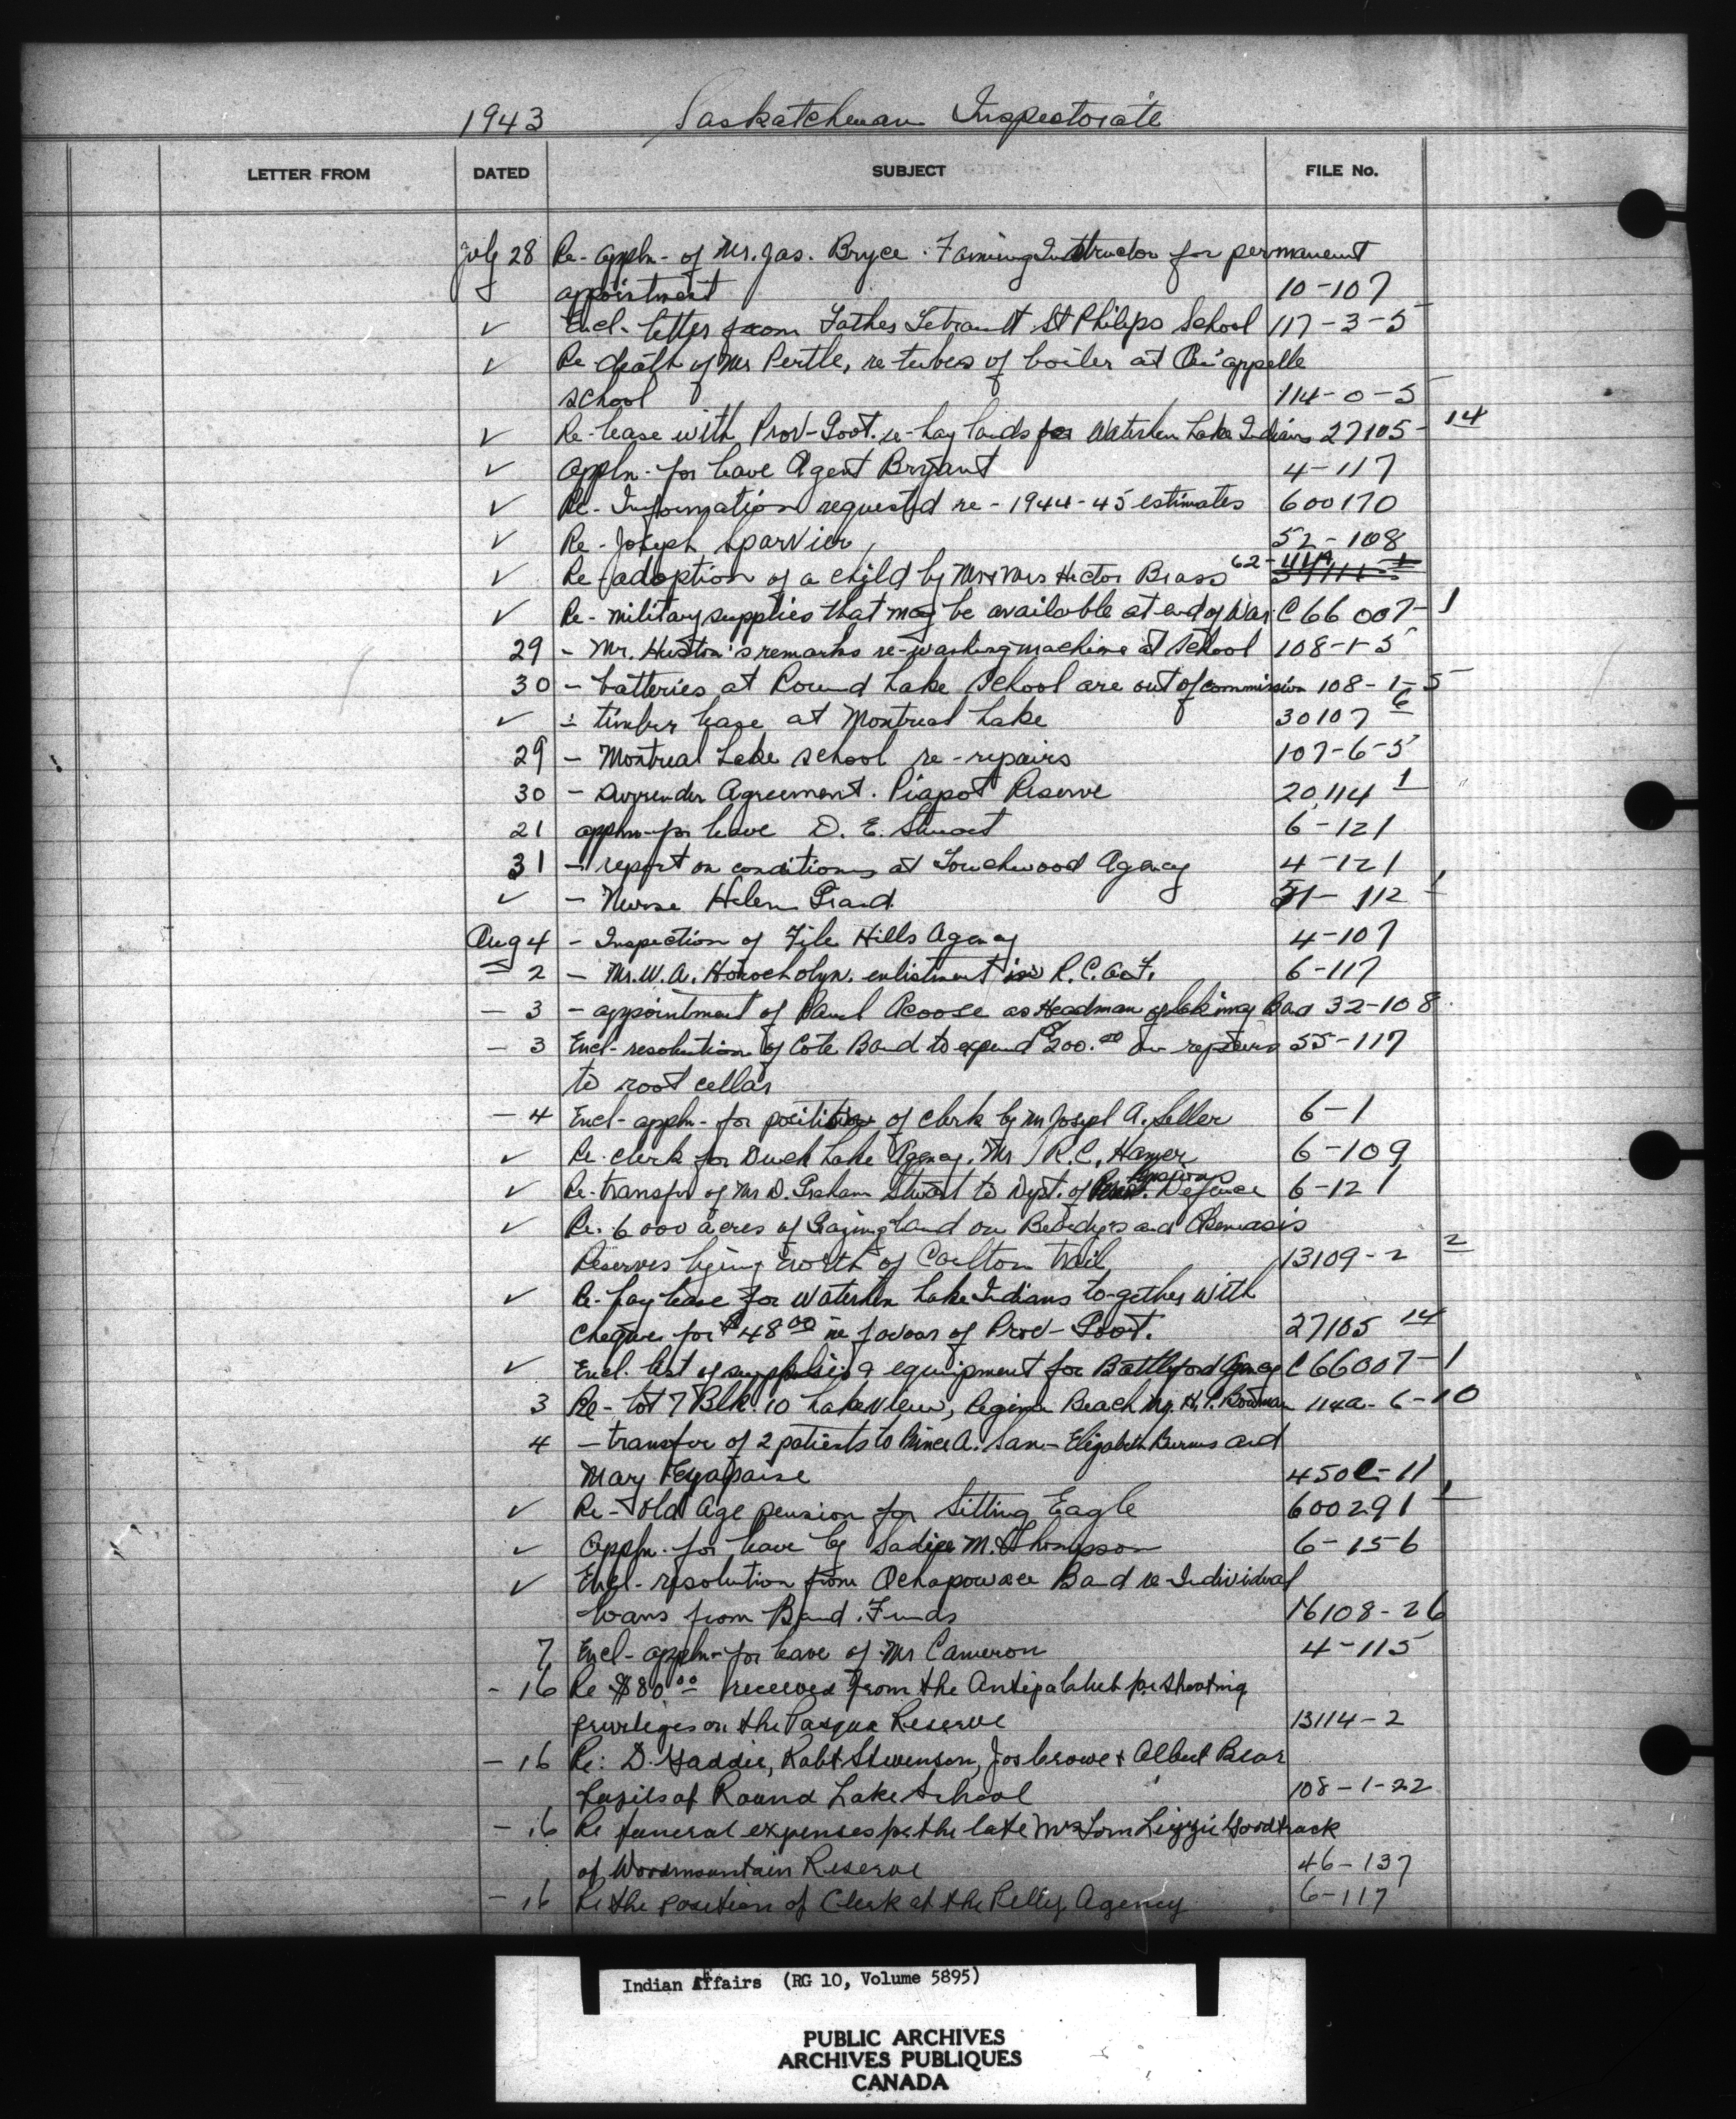 1943 Saskatchewan Inspectorate
LETTER FROM DATED SUBJECT FILE No.
July 28 Re- appln- of Mr. Jas. Bryce. Farming Instructor for permanent
appointment 10-107
✓ Encl- letter from Father St Philips School 117-3-5
✓ Re- death of Mr Pertle, re tubes of boiler at Qu'appelle
school 114-0-5
✓ Re- lease with Prov- Govt. re- hay lands for Waterhen Lake Indians 27105-14
✓ appln- for leave Agent Bryant 4-117
✓ Re- Information requested re- 1944-45 estimates 600170
✓ Re- Joseph Sparvier 52-108
✓ Re- adoption of a child by Mr & Mrs Hector Brass 62-
✓ Re- military supplies that may be available at end of War C 66007-1
29 - Mr. Huston's remarks re- washing machine at School 108-1-5
30 - batteries at Round Lake School are out of commission 108-1-5
✓ - timber lease at Montreal Lake 30107 6
29 - Montreal Lake school re- repairs 107-6-5
30 - Surrender Agreement. Piapot Reserve 20,114 1
21 appln- for leave D. E. Stuart 6-121
31 - report on conditions at Touchwood Agency 4-121
✓ - Nurse Helen 51-112 1
Aug 4 - Inspection of File Hills Agency 4-107
- 2 - Mr. W. A. enlistment in R.C.A.F. 6-117
- 3 - appointment of Paul Acoose as Headman of Sakimay Band 32-108
- 3 Encl- resolution of Cote Band to expend $200.00 on repairs 55-117
to root cellar
- 4 Encl- appln- for position of clerk by Mr Joseph A. Seller 6-1
✓ Re- clerk for Duck Lake Agency. Mr R.C. Hamer 6-109
✓ Re- transfer of Mr D. Graham Stuart to Dept. of Pensions Defence 6-121
✓ Re. 6000 acres of Grazing land on Beardy's and Okemasis
Reserves lying North of Carlton Trail 13109-2 2
✓ Re- hay lease for Waterhen Lake Indians to-gether with
cheque for $48.00 in favour of Prov- Govt. 27105 14
✓ Encl. list of supplies & equipment for Battleford Agency C 66007-1
3 Re- Lot 7 Blk. 10 Lakeview, Regina Beach Mr. H. P. Bowman 114a-6-10
4 - transfer of 2 patients to Prince A. San- Elizabeth Burns and
Mary Eyapaise 450C-11
✓ Re- old Age pension for Sitting Eagle 600291 1
✓ Appln. for leave by Sadie M. Thompson 6-156
✓ Encl- resolution from Ochapowace Band re Individual
loans from Band Funds 16108-26
7 Encl- appln- for leave of Mr Cameron 4-115
- 16 Re $80.00 received from the club for shooting
privileges on the Pasqua Reserve 13114-2
- 16 Re: D. Gaddie, Robt Stevenson, Jos Crowe & Albert Bear
Pupils of Round Lake School 108-1-22
- 16 Re funeral expenses for the late Mrs Tom Lizzie Goodtrack
of Woodmountain Reserve 46-137
- 16 Re the position of Clerk at the Pelly Agency 6-117
Indian Affairs (RG 10, Volume 5895)
PUBLIC ARCHIVES
ARCHIVES PUBLIQUES
CANADA